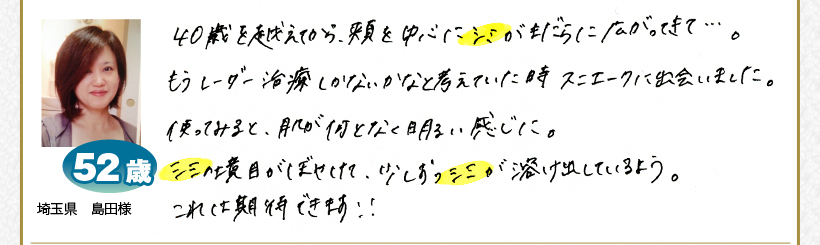 40歳を越えてから、頬を中心にシミがまだらに広がってきて…。
もうレーザー治療しかないかなと考えていた時 スニエークに出会いました。
使ってみると、肌が何となく明るい感じに。
シミは境目がぼやけて、少しずつシミが溶け出しているよう。
これは期待できます!!
52歳
埼玉県 島田様